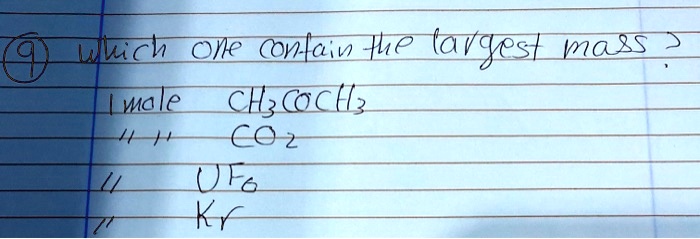 9 which one contain the largest mass ?
1 mole CH3COCH3
" " CO2
" UF6
" Kr